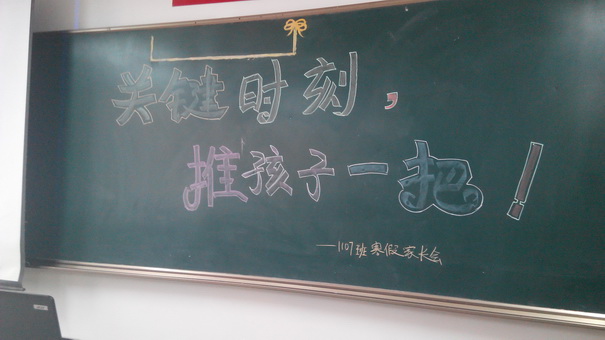 关键时刻，
推孩子一把！
——1107班寒假家长会